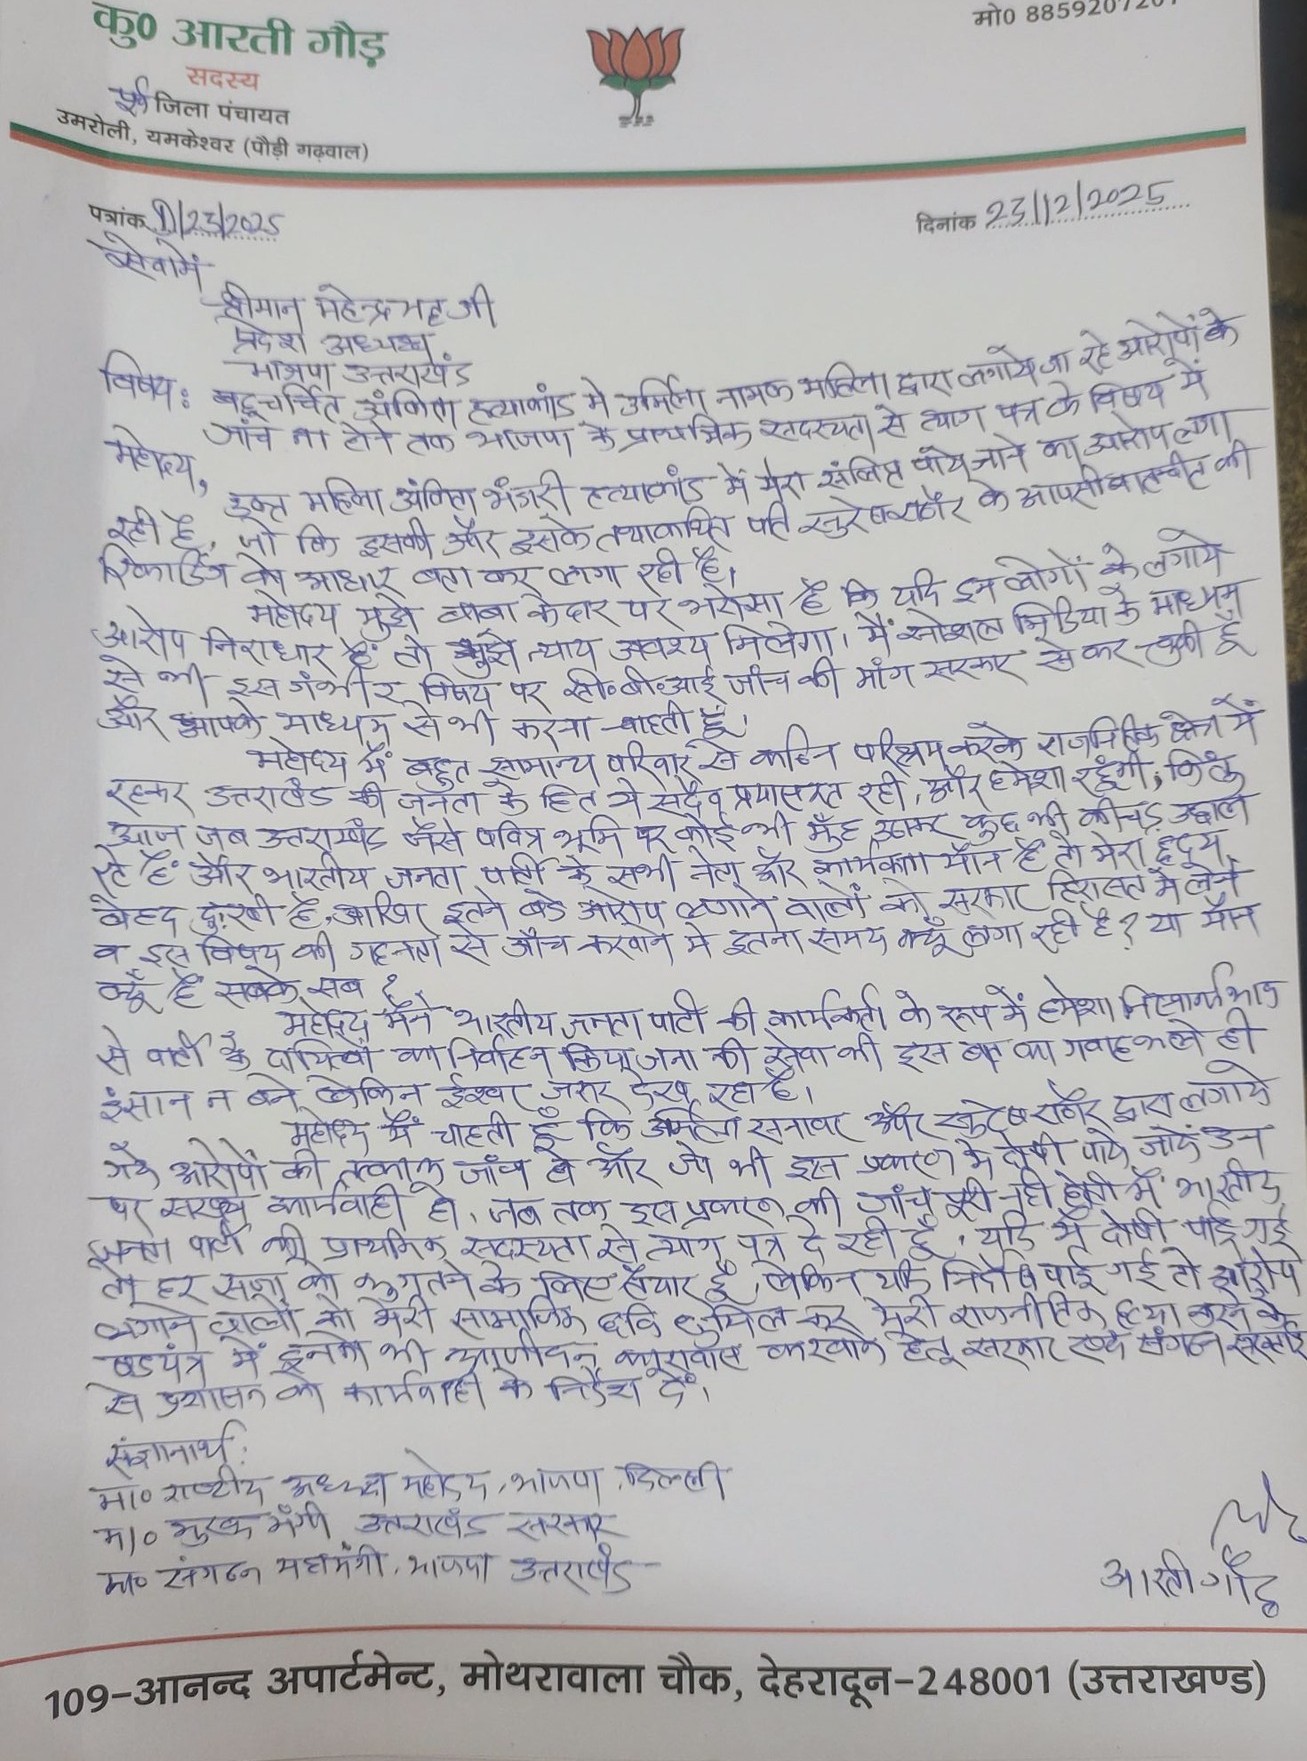 कु0 आरती गौड़
सदस्य
पूर्व जिला पंचायत
उमरोली, यमकेश्वर (पौड़ी गढ़वाल)
मो0 8859207201
पत्रांक 01/23/2025
दिनांक 23/12/2025
सेवामें
श्रीमान महेन्द्र भट्ट जी
प्रदेश अध्यक्ष
भाजपा उत्तराखंड
विषय: बहूचर्चित अंकिता हत्याकांड मे उर्मिला नामक महिला द्वारा लगाये जा रहे आरोपों के
जांच ना होने तक भाजपा के प्राथमिक सदस्यता से त्याग पत्र के विषय में
महोदय,
उक्त महिला अंकिता भंडारी हत्याकांड में मेरा संलिप्त पाये जाने का आरोप लगा
रही है, जो कि इसकी और इसके तथाकथित पति सुरेश राठौर के आपसी बातचीत की
रिकार्डिंग को आधार बता कर लगा रही है।
महोदय मुझे बाबा केदार पर भरोसा है कि यदि इन लोगों के लगाये
आरोप निराधार हैं तो मुझे न्याय अवश्य मिलेगा। मैं सोशल मिडिया के माध्यम
से भी इस गंभीर विषय पर सी०बी०आई जांच की मांग सरकार से कर चुकी हूँ
और आपके माध्यम से भी करना चाहती हूँ।
महोदय मैं बहुत सामान्य परिवार से कठिन परिश्रम करके राजनितिक क्षेत्र में
रहकर उत्तराखंड की जनता के हित मे सदैव प्रयासरत रही, और हमेशा रहूंगी, किंतु
आज जब उत्तराखंड जैसे पवित्र भूमि पर कोई भी मुँह उठाकर कुछ भी कीचड़ उछाल
रहे हैं और भारतीय जनता पार्टी के सभी नेता और कार्यकर्ता मौन हैं तो मेरा हृदय
बेहद दुःखी है, आखिर इतने बडे आरोप लगाने वालों को सरकार हिरासत में लेने
व इस विषय की गहनता से जाँच करवाने मे इतना समय क्यूँ लगा रही है? या मौन
क्यूँ हैं सबके सब?
महोदय मैंने भारतीय जनता पार्टी की कार्यकर्ता के रूप में हमेशा निस्वार्थ भाव
से पार्टी के दायित्वों का निर्वाहन किया जनता की सेवा की इस बात का गवाह भले ही
इंसान न बने लेकिन ईश्वर जरूर देख रहा है।
महोदय मैं चाहती हूँ कि उर्मिला सनावर और सुरेश राठौर द्वारा लगाये
गये आरोपों की तत्काल जांच हो और जो भी इस प्रकरण मे दोषी पाये जायें उन
पर सख्त कार्यवाही हो, जब तक इस प्रकरण की जांच पूरी नही होती मैं भारतीय
जनता पार्टी की प्राथमिक सदस्यता से त्याग पत्र दे रही हूँ, यदि मैं दोषी पाई गई
तो हर सजा को भुगतने के लिए तैयार हूँ, लेकिन यदि निर्दोष पाई गई तो आरोप
लगाने वालों को मेरी सामाजिक छवि धुमिल कर मेरी राजनीतिक हत्या करने के
षडयंत्र में इनको भी आजीवन कारावास करवाने हेतू सरकार एवं संगठन सरकार
से प्रशासन को कार्यवाही के निर्देश दें।
संज्ञानार्थ:
मा० राष्टीय अध्यक्ष महोदय, भाजपा, दिल्ली
मा० मुख्य मंत्री, उत्तराखंड सरकार
मा० संगठन महामंत्री, भाजपा उत्तराखंड
आरती गौड़
109-आनन्द अपार्टमेन्ट, मोथरावाला चौक, देहरादून-248001 (उत्तराखण्ड)